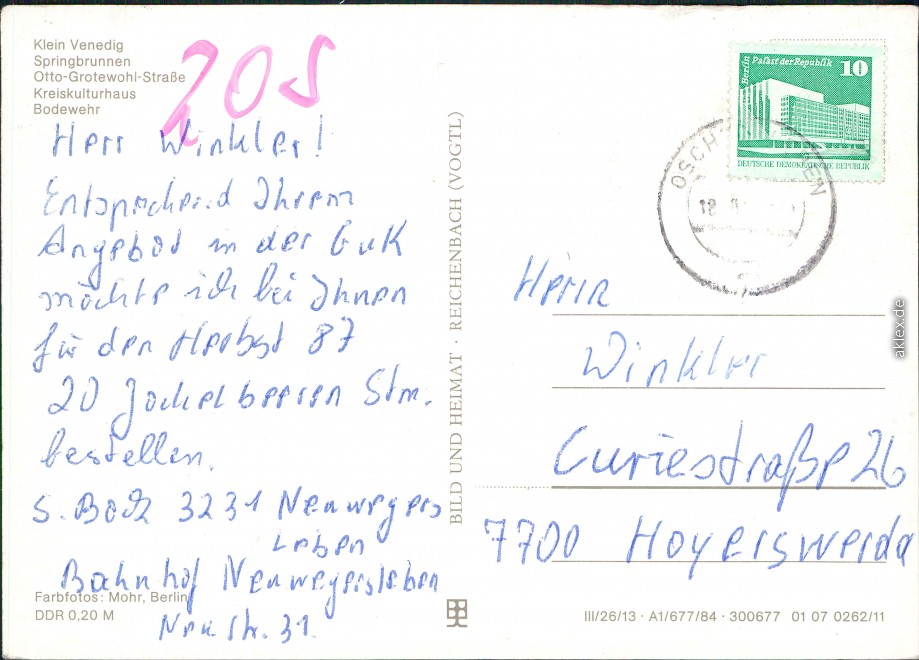 Klein Venedig
Springbrunnen
Otto-Grotewohl-Straße
Kreiskulturhaus
Bodewehr
20 S
Herr Winkler!
Entsprechend Ihrem
Angebot in der GuK
möchte ich bei Ihnen
für den Herbst 87
20 Jochelbeeren Stm.
bestellen.
S. Bock 3231 Neuwegers
Leben
Bahnhof Neuwegersleben
Neue Str. 31.
Farbfotos: Mohr, Berlin
DDR 0,20 M
BILD UND HEIMAT · REICHENBACH (VOGTL)
Berlin Palast der Republik 10
DEUTSCHE DEMOKRATISCHE REPUBLIK
Herrn
Winkler
Curiestraße 26
7700 Hoyerswerda
III/26/13 · A1/677/84 · 300677 01 07 0262/11
aklex.de